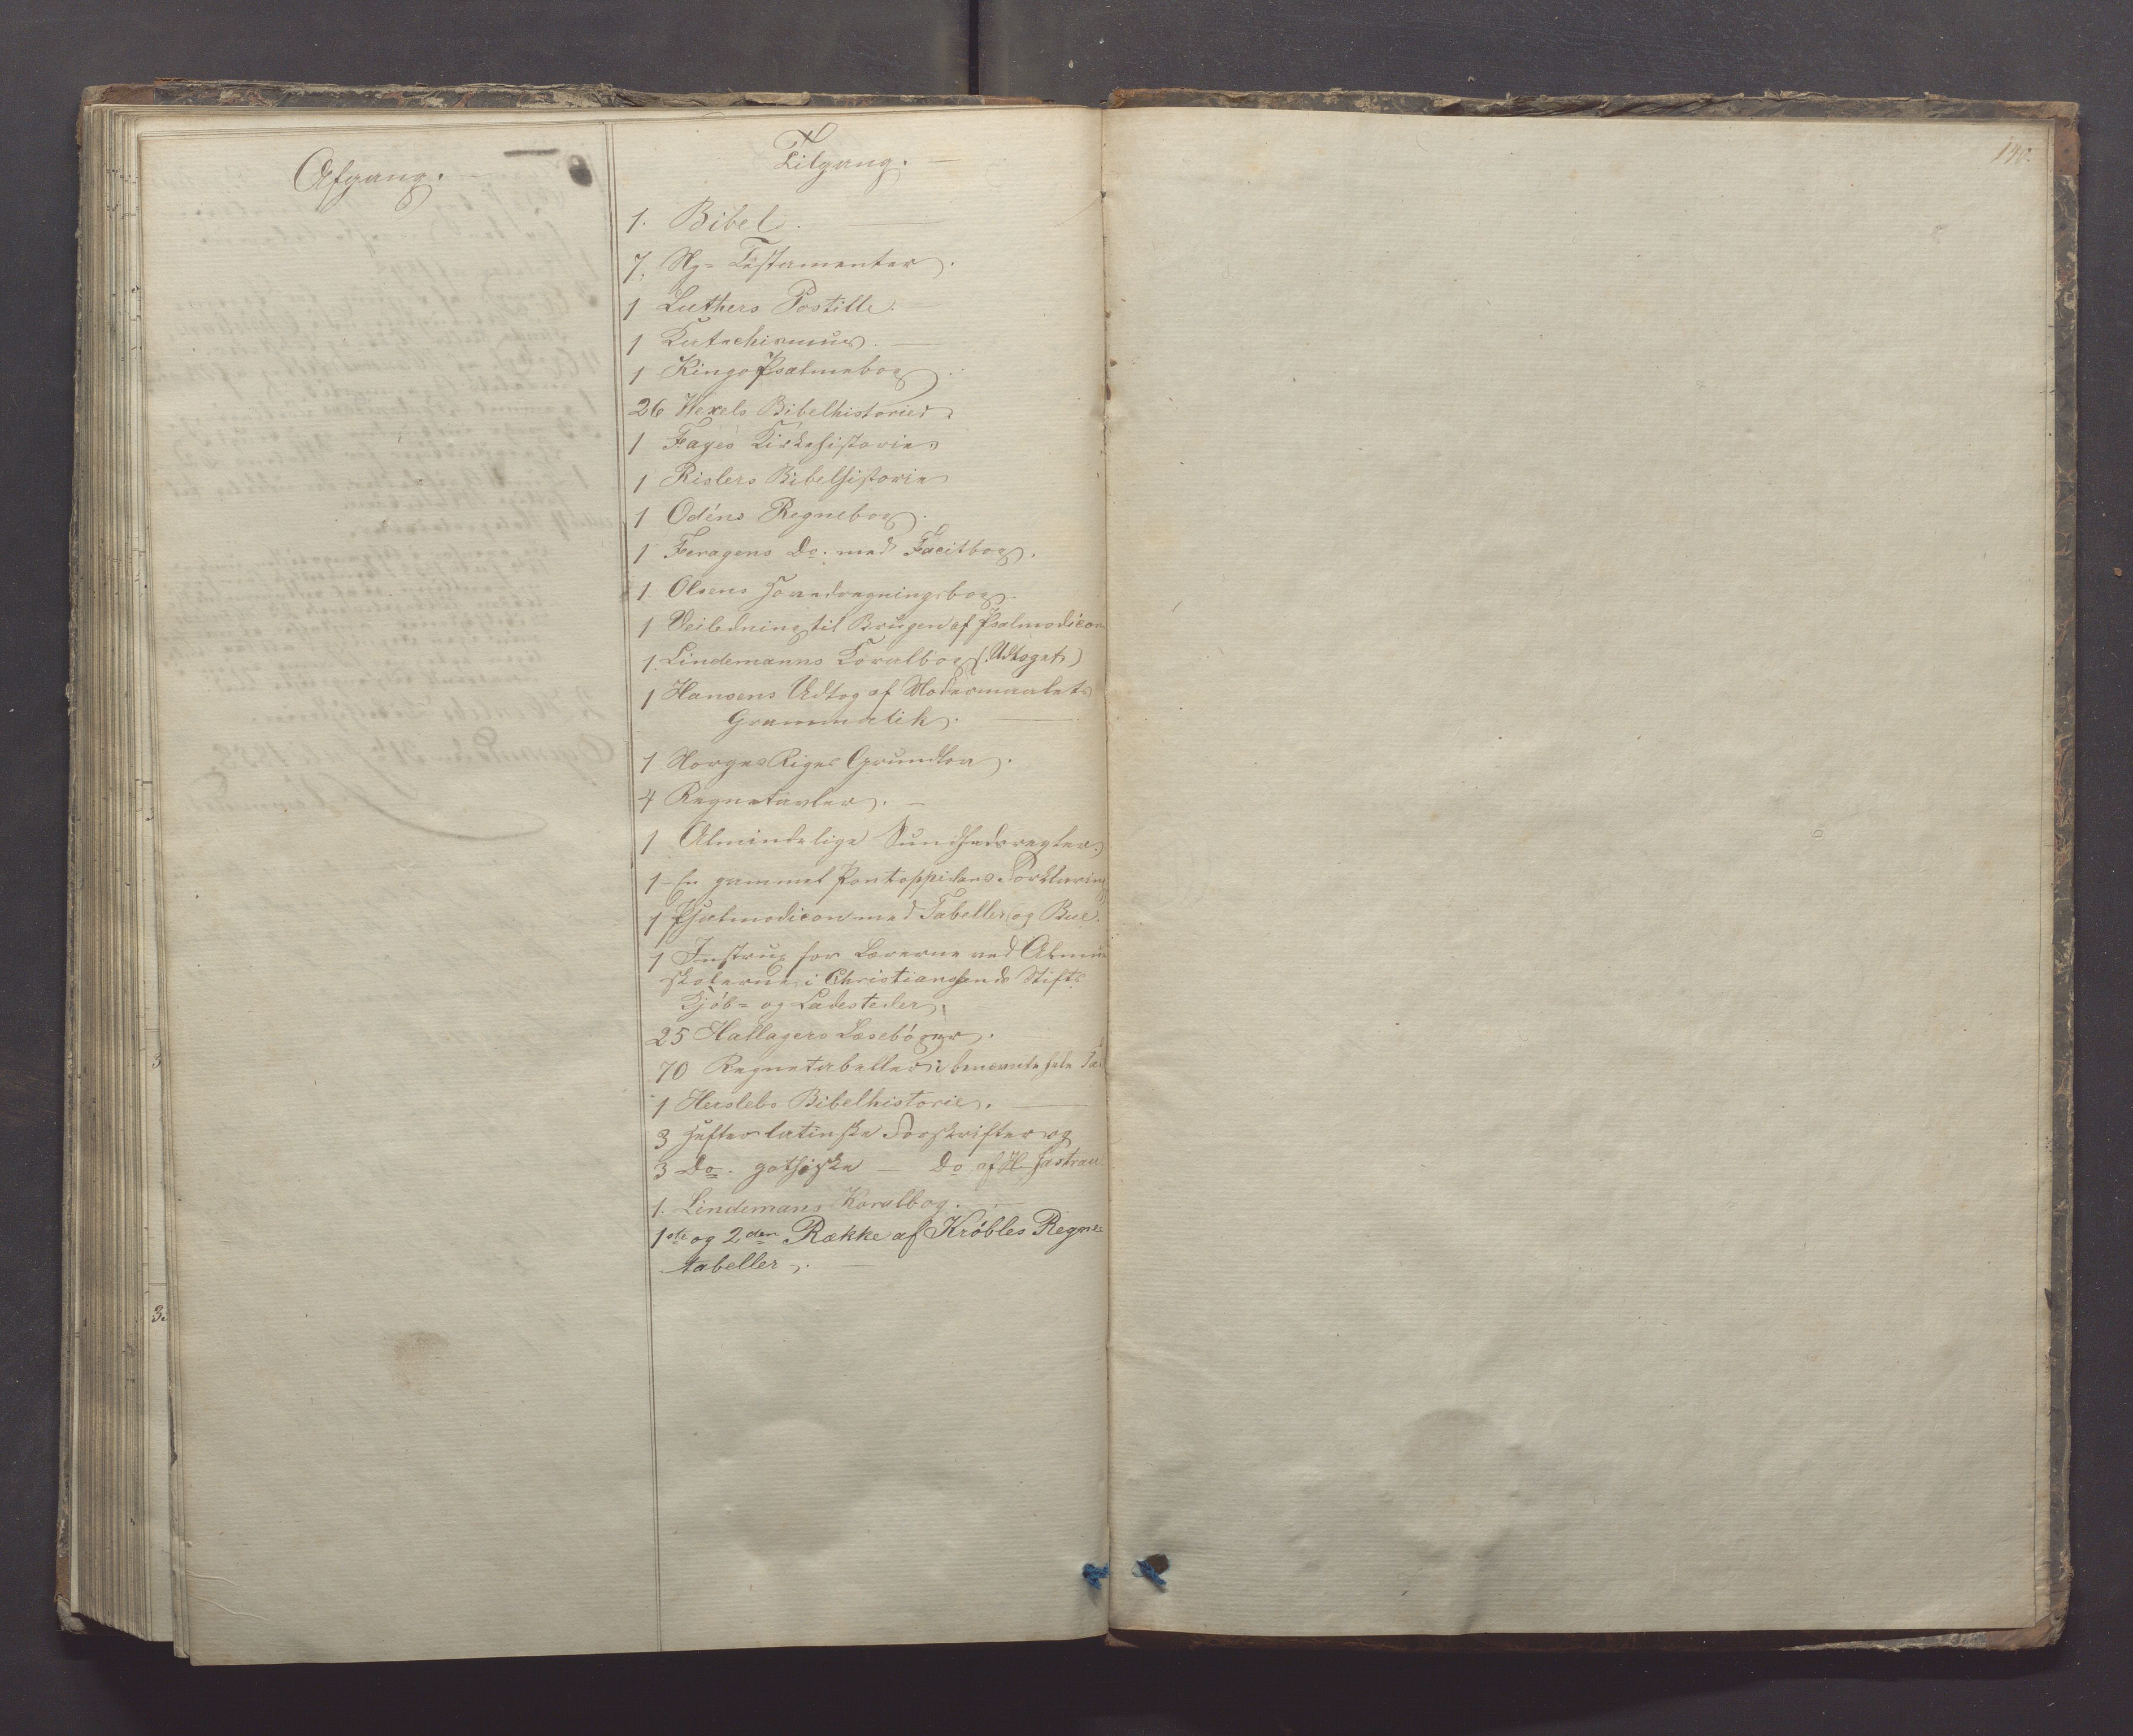 140.
Afgang. —
Tilgang. —
1. Bibel. —
7. Ny= Testamenter.
1 Luthers Postille. —
1 Katechismus. —
1 Kingos Psalmebog.
26 Wexels Bibelhistorier.
1 Fayes Kirkehistorie
1 Rislers Bibelhistorie
1 Odéns Regnebog.
1 Feragens Do. med Facitbog.
1. Olsens Hovedregningsbog.
1 Veiledning til Brugen af Psalmodicon
1. Lindemanns Koralbog (Udtoget)
1 Hansens Udtog af Modersmaalets
Grammatik. —
1 Norges Riges Grundlov.
4 Regnetavler. —
1 Almindelige Sundhedsregler.
1 En gammel Pontoppidans Forklaring
1 Psalmodicon med Tabeller og Bue.
1 Instrux for Lærerne ved Almue
skolerne i Christianssands Stifts
Kjöb= og Ladesteder.
25 Hallagers Læsebøger.
70 Regnetabeller i benævnte hele Tal
1 Herslebs Bibelhistorie. —
3 Hefter latinske Forskrifter og
3 Do. gothiske — Do af H. Jastrau.
1. Lindemans Koralbog. —
1ste og 2den Række af Kröbles Regne=
tabeller. —